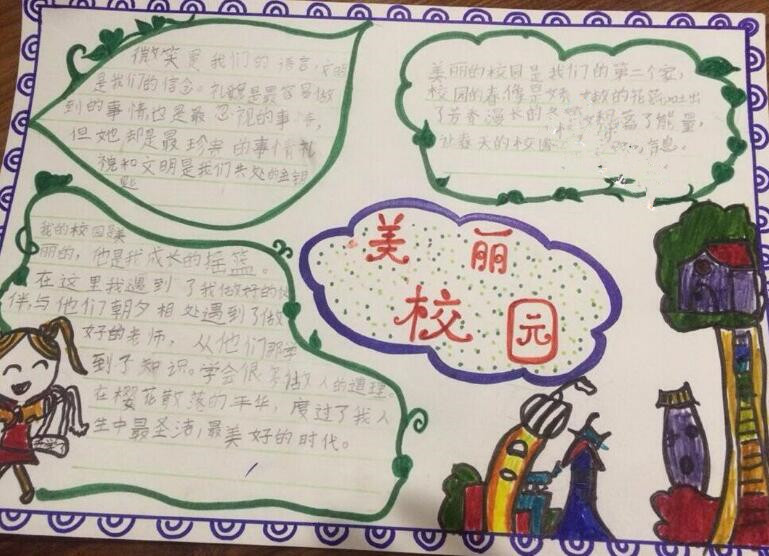 微笑是我们的语言,文明
是我们的信念。礼貌是最容易做
到的事情,也是最忽视的事情,
但她却是最珍贵的事情礼
貌和文明是我们共处的金钥
匙
美丽的校园是我们的第二个家,
校园的春像是娇嫩的花蕊,吐出
了芳香漫长的冬
蓄了能量,
让春天的校园
息。
美丽
校园
我的校园是美
丽的,他是我成长的摇篮。
在这里我遇到了我做好的伙
伴,与他们朝夕相处遇到了做
好的老师,从他们那学
到了知识。学会很多做人的道理。
在樱花散落的年华,度过了我人
生中最圣洁,最美好的时代。